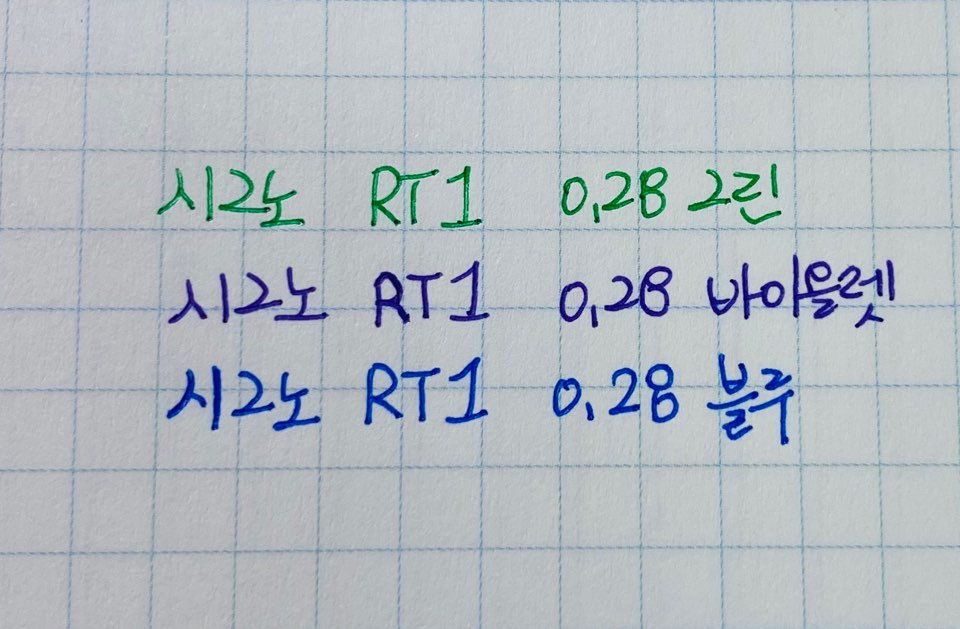 시그노 RT1 0.28 그린
시그노 RT1 0.28 바이올렛
시그노 RT1 0.28 블루